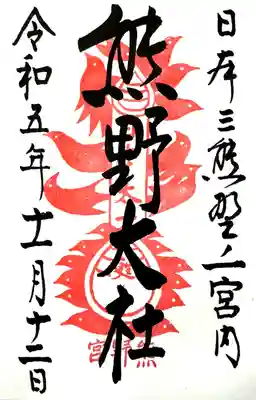 日本三熊野ノ一宮内
熊野大社
令和五年十一月十二日
熊野宮